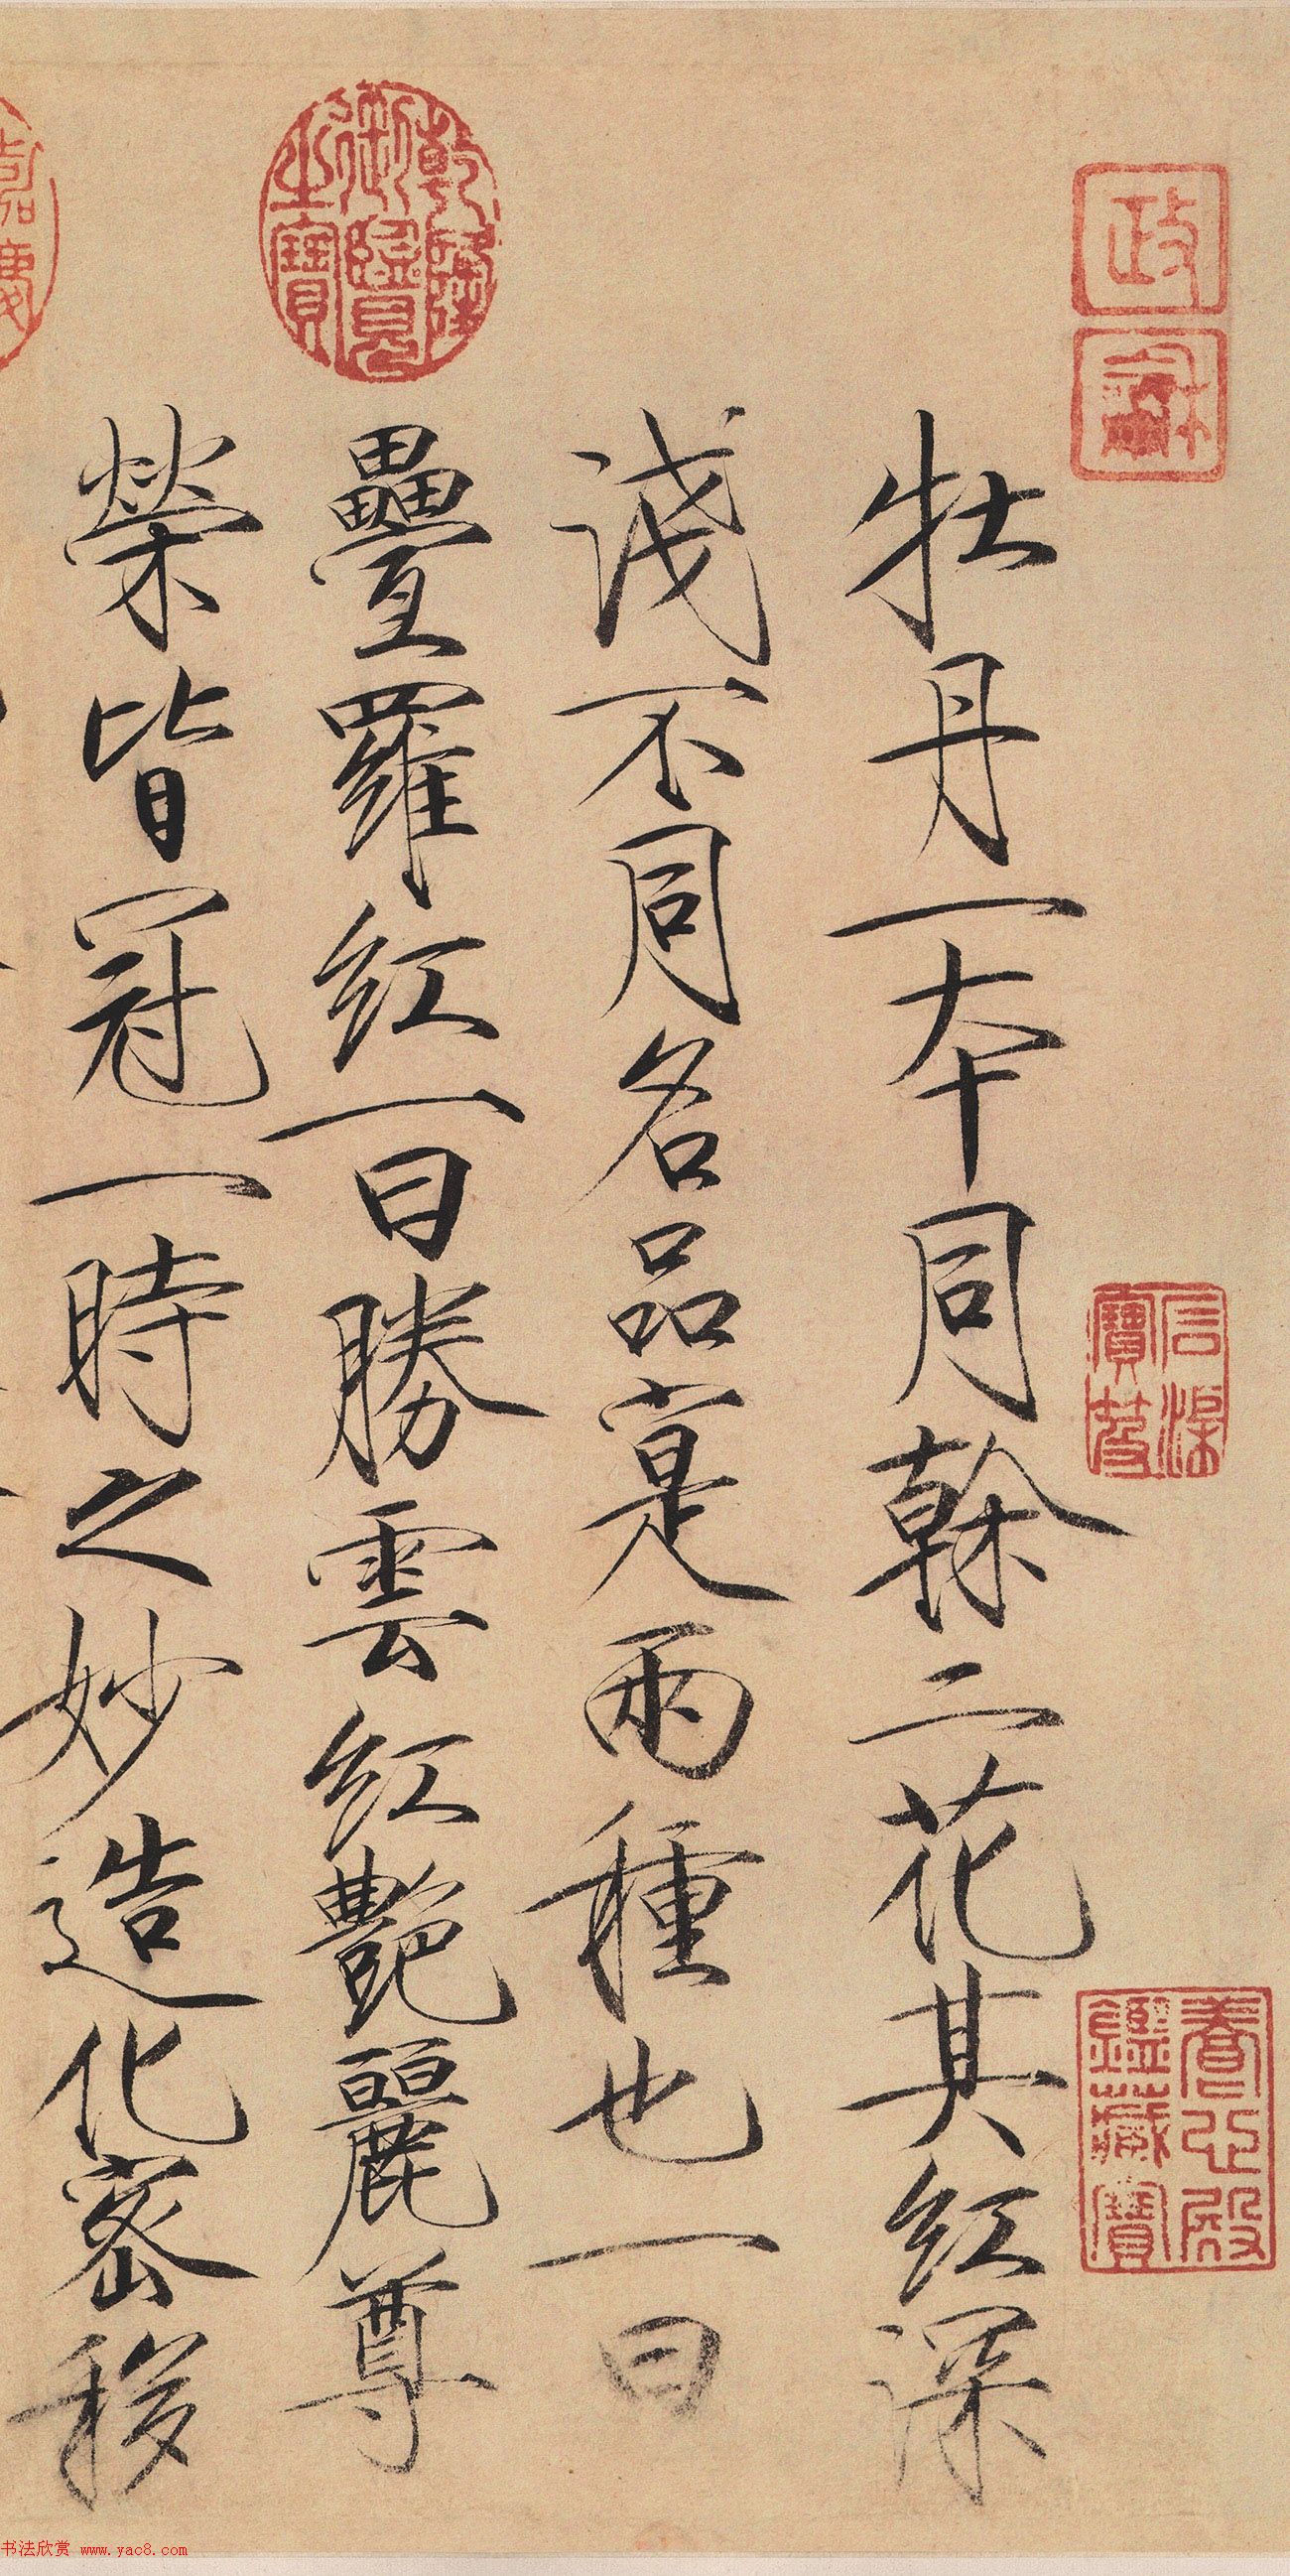 牡丹一本同榦二花其紅深
淺不同名品寔兩種也一曰
疊羅紅一曰勝雲紅艷麗尊
榮皆冠一時之妙造化密移
政
龢
乾隆
御覽
之寶
嘉慶
養心殿
鑑藏寶
书法欣赏 www.yac8.com